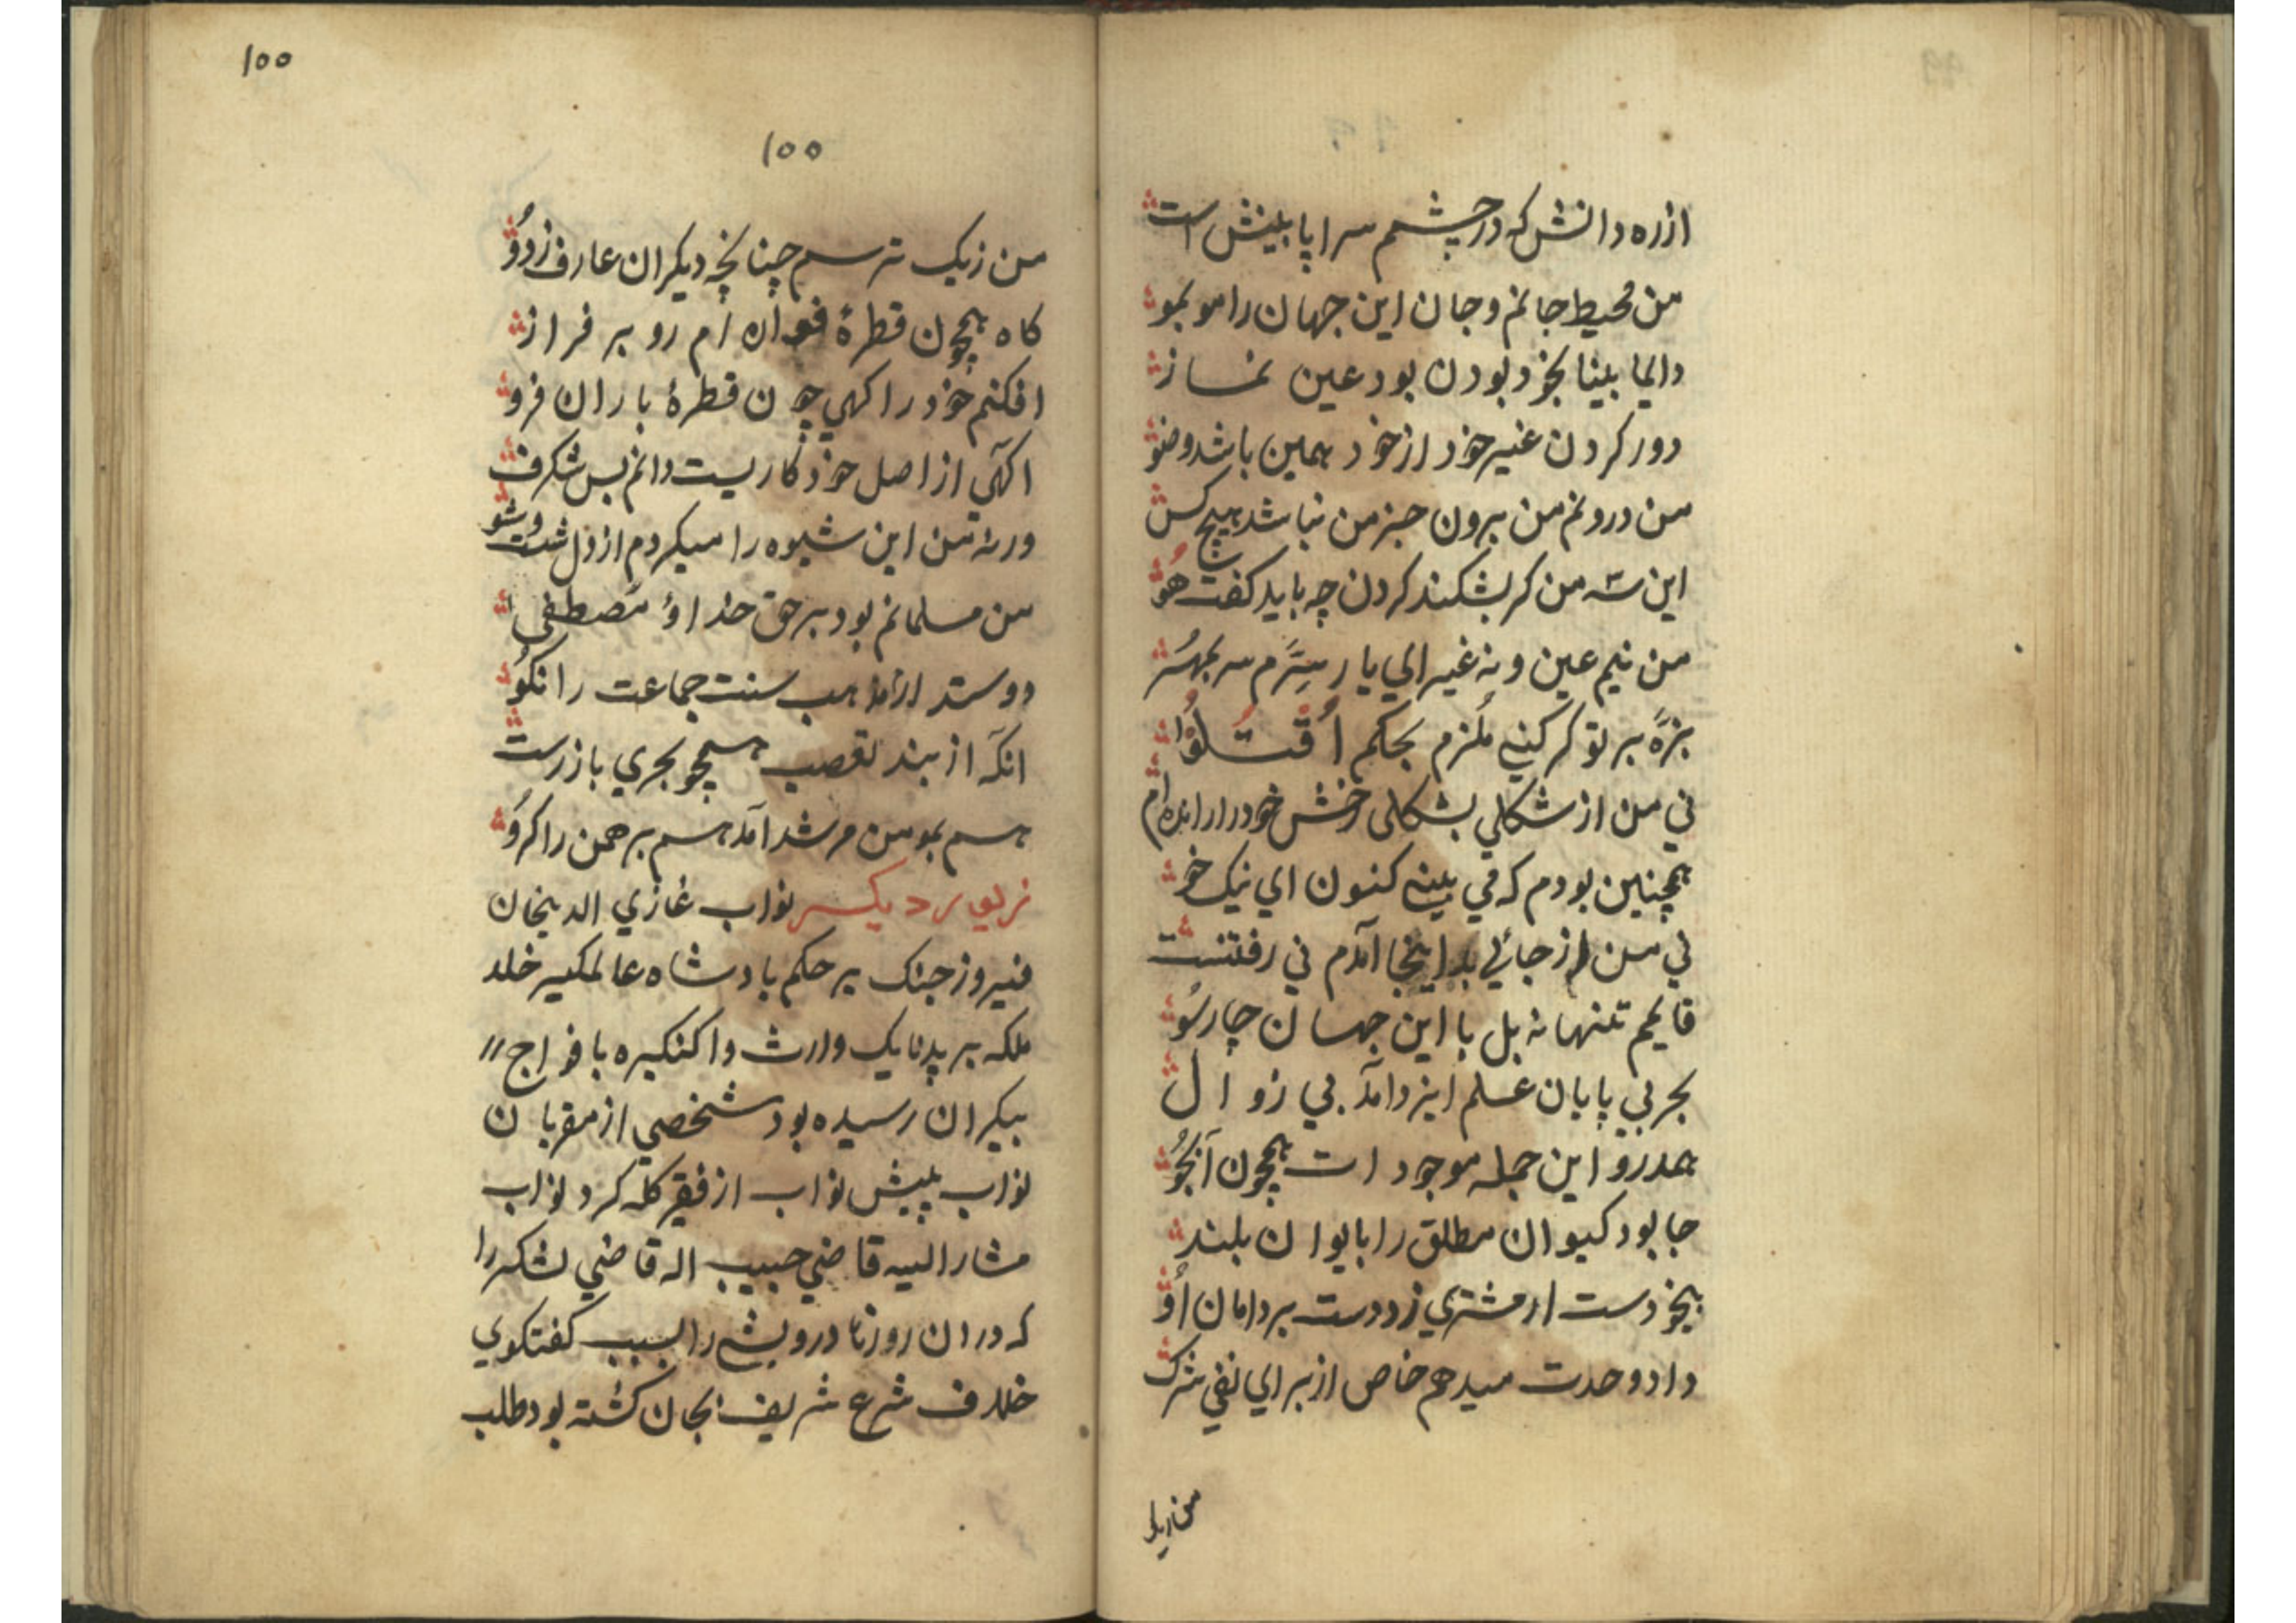 ازره دانش که درچشم سراپا بینش است
من محیط جانم وجان این جهان را مو بمو
دایما بینا بخود بودن بود عین نماز
دور کردن غیر خود از خود همین باشد وضو
من درونم من برون جز من نباشد هیچ کس
این من کر بشکند کردن چه باید کفت هو
من نیم عین و نه غیر ای یار سرم سر بمهر
بزه بر تو کر کنی ملزم بحکم اقتلوا
ني من از شکلي بشکلی رخش خود را رانده ام
همچنین بودم که مي بیني کنون اي نیک خو
ني من از جائي بد اینجا آمدم ني رفتنست
قایمم تنها نه بل با این جهان چارسو
بحر بي پایان علم ایزد آمد بي زوال
اندرو این جمله موجودات همچون آبجو
جا بود کیوان مطلق را بایوان بلند
بیخودست ار مشتري زد دست بر دامان او
داد وحدت میدهم خاص از براي نفي شرک
من از یک
۱۰۰
۱۰۰
من زیک ترسم چنانچه دیکران عارف زدو
کاه همچون قطرۀ فواره ام رو بر فراز
افکنم خود را کهي چون قطرۀ باران فرو
اکهي از اصل خود کاریست دانم بس شکرف
ورنه من این شیوه را میکردم از دل شست وشو
من مسلمانم بود برحق خدا و مصطفی
دوستدار مذهب سنت جماعت را نکو
انکه از بند تعصب همچو بحري باز رست
هم بمومن مرشد آمد هم برهمن را کرو
زیور دیکر نواب غازي الدینخان
فیروز جنک بر حکم بادشاه عالمکیر خلد
ملکه بر پدنایک وارث واکنکیره بافواج
بیکران رسیده بود شخصي از مقربان
نواب پیش نواب از فقیر کله کرد نواب
مشار الیه قاضي حبیب اله قاضي لشکر را
که دران روزها درویشي را بسبب کفتکوي
خلاف شرع شریف بجان کشته بود طلب